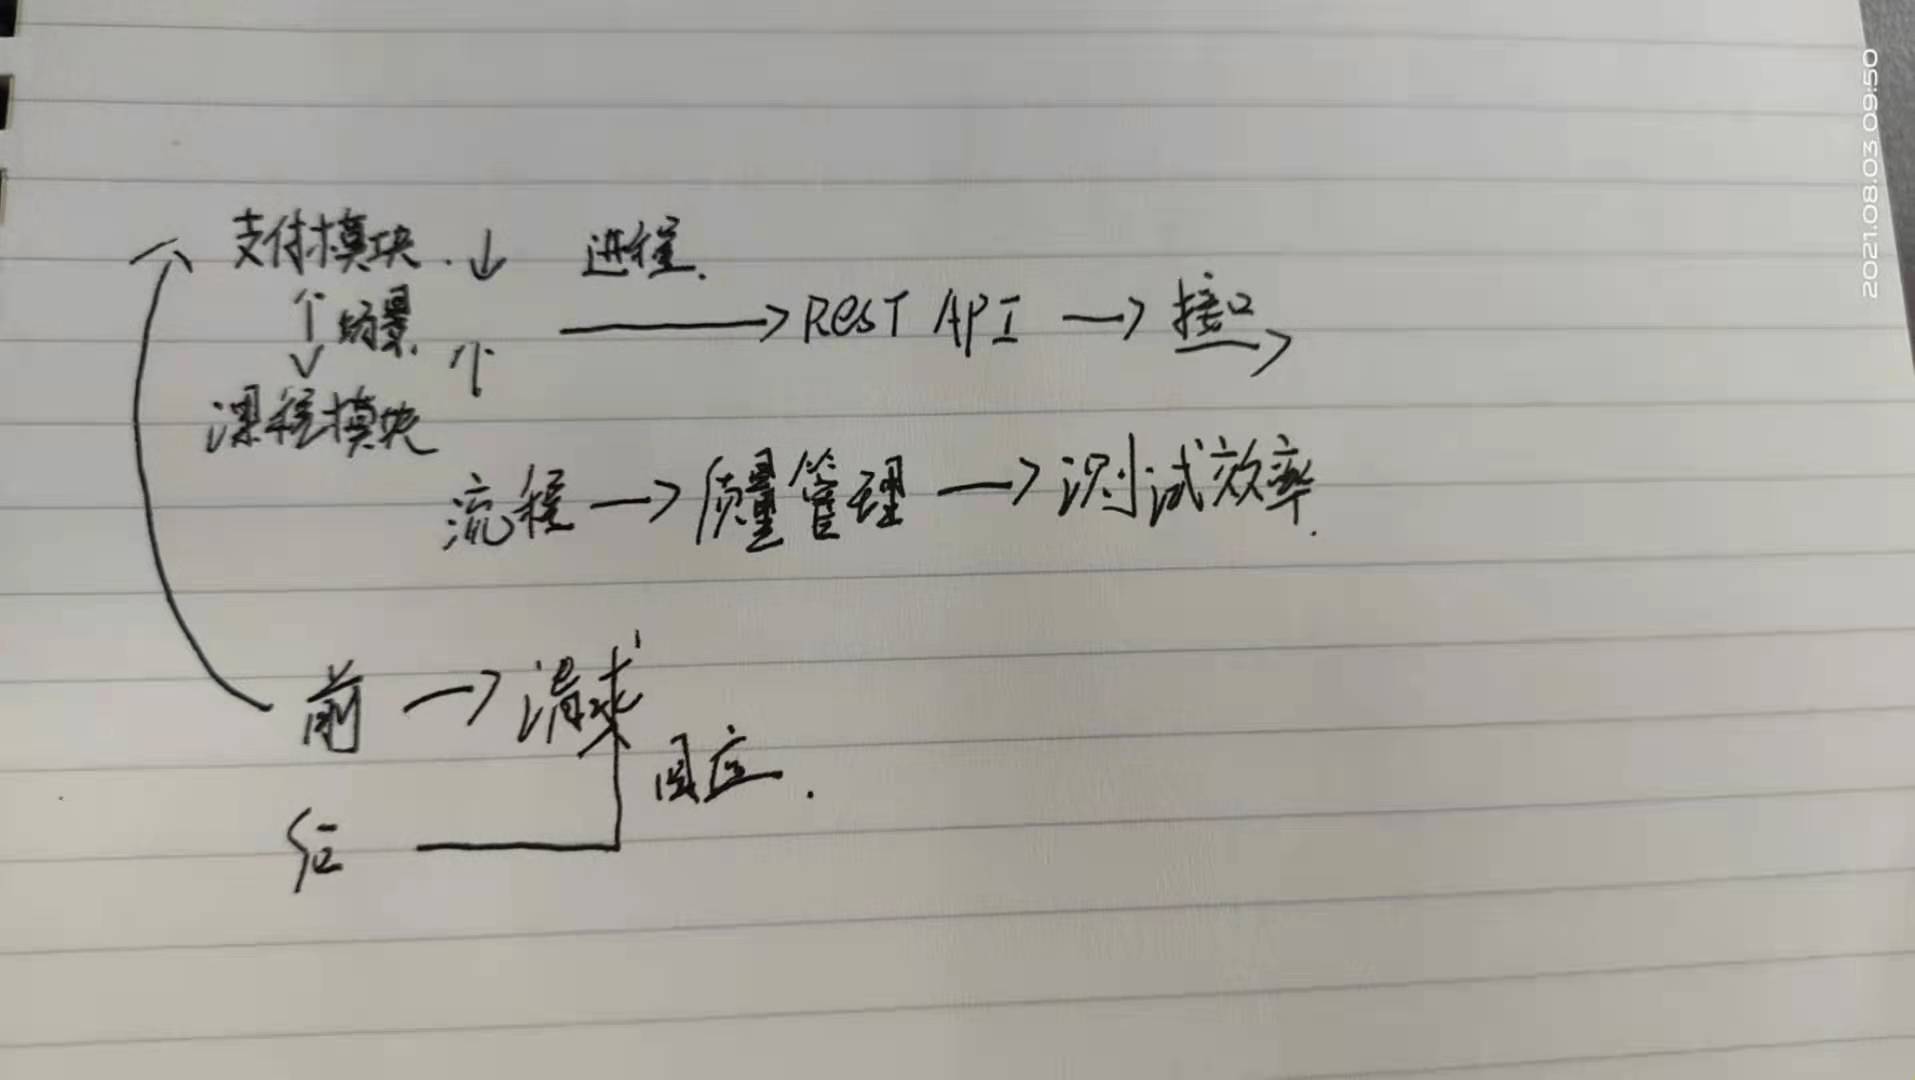 支付模块. ↓ 进程.
↑ 场景. ↑ → REST API → 接口 →
↓
课程模块
流程 → 质量管理 → 测试效率.
前 → 请求
回应.
后
2021.08.03 09:50